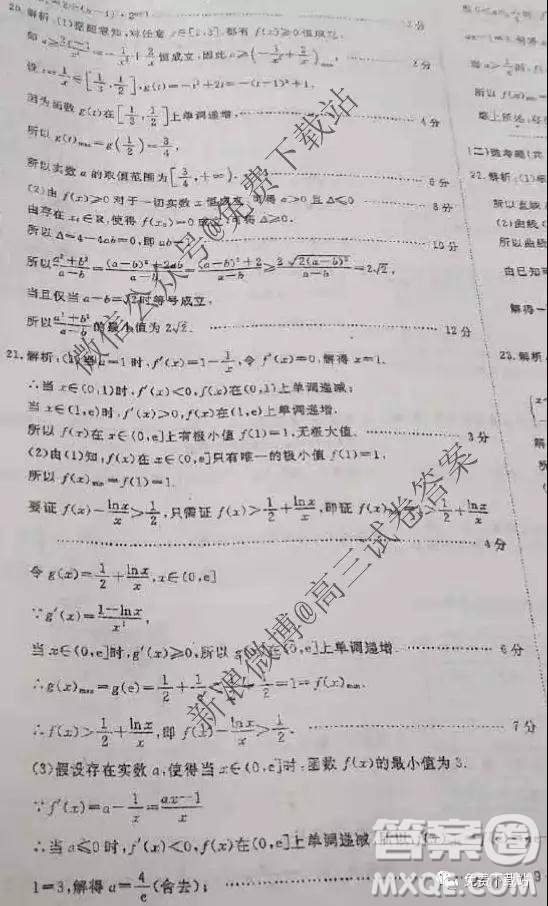 20. 解析:(1)
对任意 x∈[2,3],都有 f(x)≥0 恒成立,
恒成立,因此 a≥(-1/x²+2/x)max
2分
设 t=1/x∈[1/3,1/2],g(t)=-t²+2t=-(t-1)²+1,
因为函数 g(t)在[1/3,1/2]上单调递增,
4分
所以 g(t)max=g(1/2)=3/4,
所以实数 a 的取值范围为[3/4,+∞).
6分
(2)由 f(x)≥0 对于一切实数 x 恒成立,可得 a>0 且 Δ≤0
8分
由存在 x₀∈R,使得 f(x₀)=0 成立可得 Δ≥0.
所以 Δ=4-4ab=0,即 ab=1
10分
所以(a²+b²)/(a-b)=((a-b)²+2ab)/(a-b)=((a-b)²+2)/(a-b)≥2√(2(a-b)²)/(a-b)=2√2,
当且仅当 a-b=√2时等号成立,
所以(a²+b²)/(a-b)的最小值为 2√2.
12分
21. 解析:(1)当a=1 时,f′(x)=1-1/x,令 f′(x)=0,解得 x=1.
∴当 x∈(0,1)时,f′(x)<0,f(x)在(0,1)上单调递减;
当 x∈(1,e)时,f′(x)>0,f(x)在(1,e)上单调递增.
所以 f(x)在 x∈(0,e]上有极小值 f(1)=1,无极大值.
3分
(2)由(1)知,f(x)在(0,e]只有唯一的极小值 f(1)=1,
所以 f(x)min=f(1)=1.
要证 f(x)-lnx/x>1/2,只需证 f(x)>1/2+lnx/x,即证 f(x)min>1/2+lnx/x
4分
令 g(x)=1/2+lnx/x,x∈(0,e]
∵g′(x)=(1-lnx)/x²,
当 x∈(0,e]时,g′(x)≥0,所以 g(x)在(0,e]上单调递增.
6分
∴g(x)max=g(e)=1/2+1/e<1/2+1/2=1=f(x)min.
∴f(x)>1/2+lnx/x,即 f(x)-lnx/x>1/2.
7分
(3)假设存在实数 a,使得当 x∈(0,e]时,函数 f(x)的最小值为 3.
∵f′(x)=a-1/x=(ax-1)/x
∴当 a≤0 时,f′(x)<0,f(x)在(0,e]上单调递减,所以
1=3,解得 a=4/e(舍去);
9
所以 f(x)
(二)选考题(共
22. 解析:(1)
所以直线
(2)曲线
所以曲线
由已知可
解得
23. 解析
微信公众号@免费下载站
新浪微博@高三试卷答案
答案圈
MXQE.COM
免费下载站